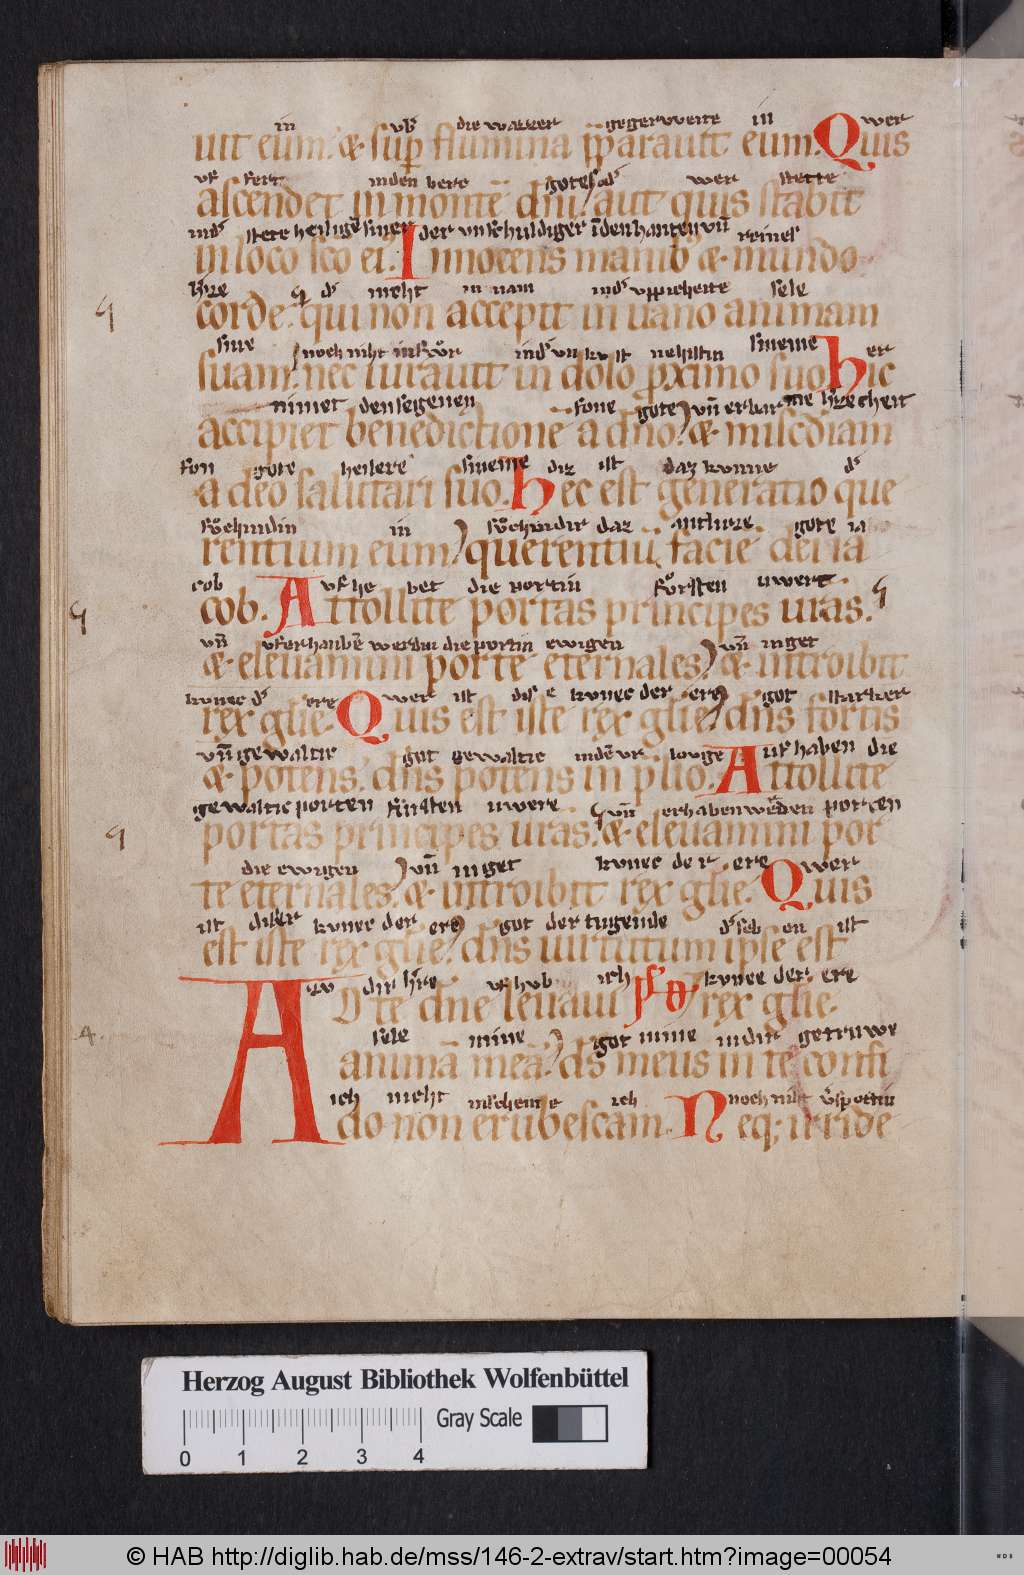 in vb̃ die wazzer gegerweite in wer
uit eum. & sup̱ flumina p̱parauit eum. Quis
vf fert inden berc gotes od͛ wer stette
ascendet in monte dñi? aut quis stabit
ind͛ stete heiligẽ siner der vnschuldiger ĩ den hanten vñ reines
in loco sco ei. Innocens manib & mundo
h͛ze d͛ nieht in nam ind͛ vppicheite sele
corde. qui non accepit in uano animam
sine noch niht ind͛ vnkust nehistin sineme her
suam. nec iurauit in dolo p̱ximo suo. Hic
nimet den segenen fone gote vñ erbarme h͛zecheit
accipiet benedictionē a dño. & misc̄diam
fon gote heilere sineme diz ist daz kunne d͛
a deo salutari suo. Hec est generatio que
sůchindin in sůchindir daz antluze gote ia
rentium eum. querentiū faciē dei ia
cob vf he bet die portin fůrsten uwere
cob. Attollite portas principes uras.
vñ vferhaubē werdin die portin ewigen vñ inget
& eleuamini porte eternales. & introibit
kunec d͛ ere wer ist dise kunec der ere got starker
rex glie. Quis est iste rex glie? dñs fortis
vñ gewaltic got gewaltic indē urlouge uf haben die
& potens. dñs potens in p̱lio. Attollite
gewaltic porten fursten uwere vñ erhaben werden porten
portas principes uras. & eleuamini por
die ewigen vñ inget kunec der ere wer
te eternales. & introibit rex glie. Quis
ist diser kunec der ere got der tugende d͛ selb on ist
est iste rex glie? dñs uirtutum ipse est
zu dir h͛re vf hub ich kunec der ere
AD te dñe leuaui rex glie.
sele mine got mine indir getruwe
4. animā meā. ds̄ meus in te confi
ich nieht inscheme ich noch niht v͛spottin
do non erubescam. Neq; irride
Herzog August Bibliothek Wolfenbüttel
Gray Scale
0 1 2 3 4
© HAB http://diglib.hab.de/mss/146-2-extrav/start.htm?image=00054